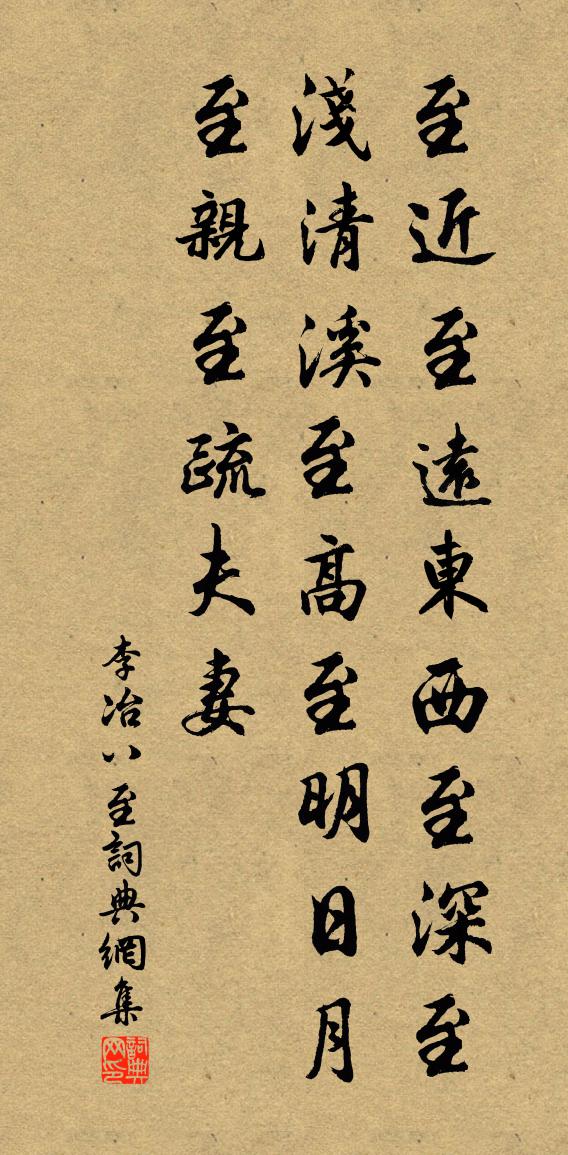 至近至遠東西至深至
淺清溪至高至明日月
至親至疏夫妻
李冶八至詞典網集
詞典网印